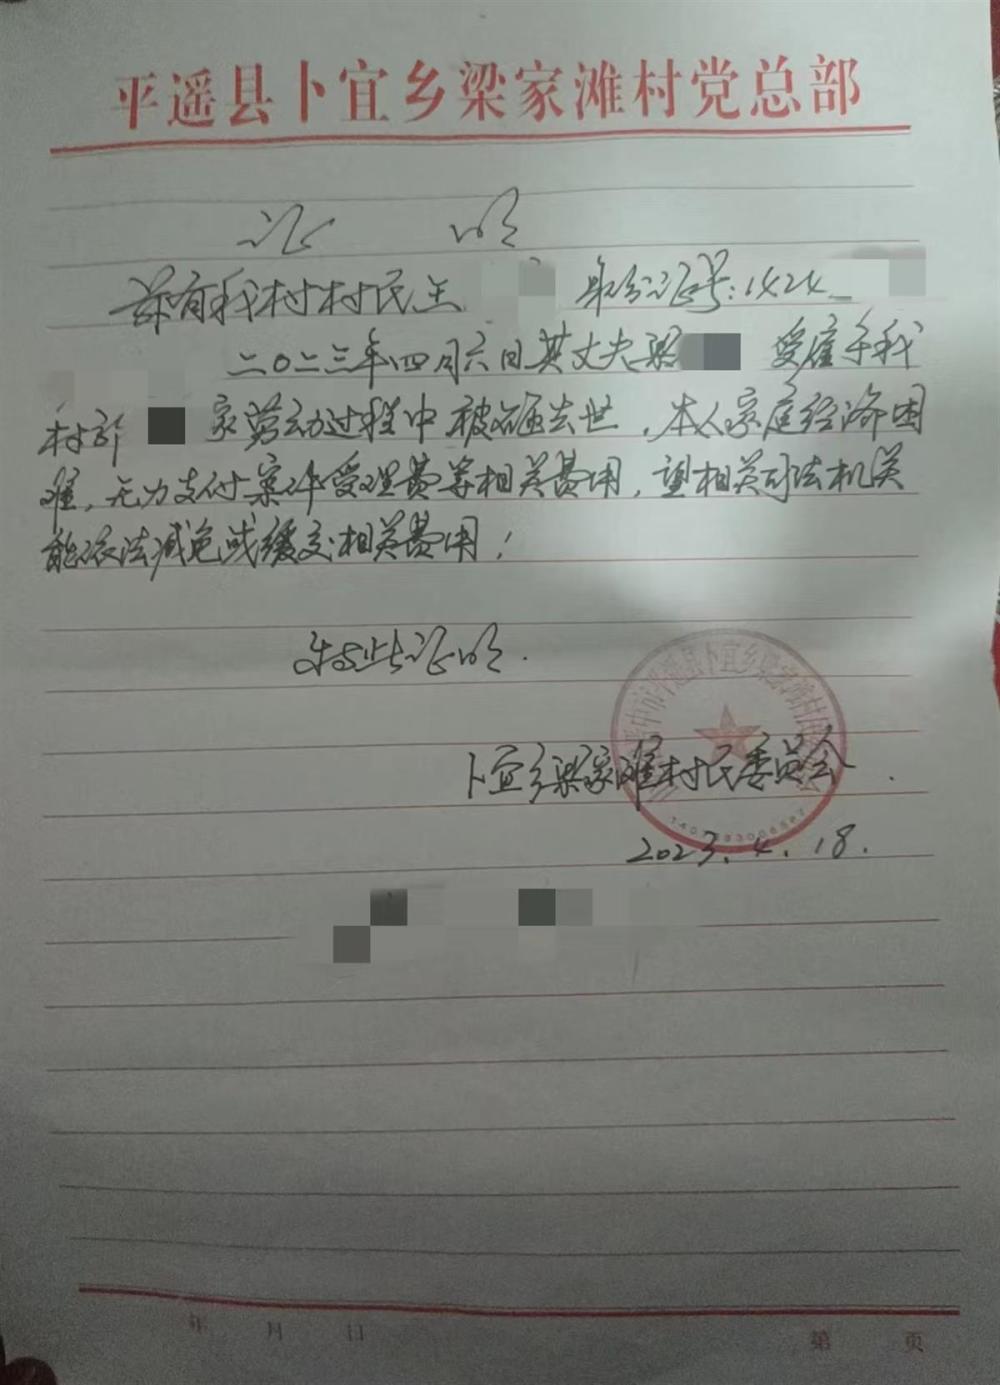 平遥县卜宜乡梁家滩村党总部
证 明
兹有我村村民王 身份证号:1424
二〇二三年四月六日其丈夫梁 受雇于我
村 家劳动过程中被砸去世,本人家庭经济困
难,无力支付案件受理费等相关费用,望相关司法机关
能依法减免或缓交相关费用!
特此证明.
晋中市平遥县卜宜乡梁家滩村
卜宜乡梁家滩村民委员会.
2023.4.18.
年 月 日 第 页